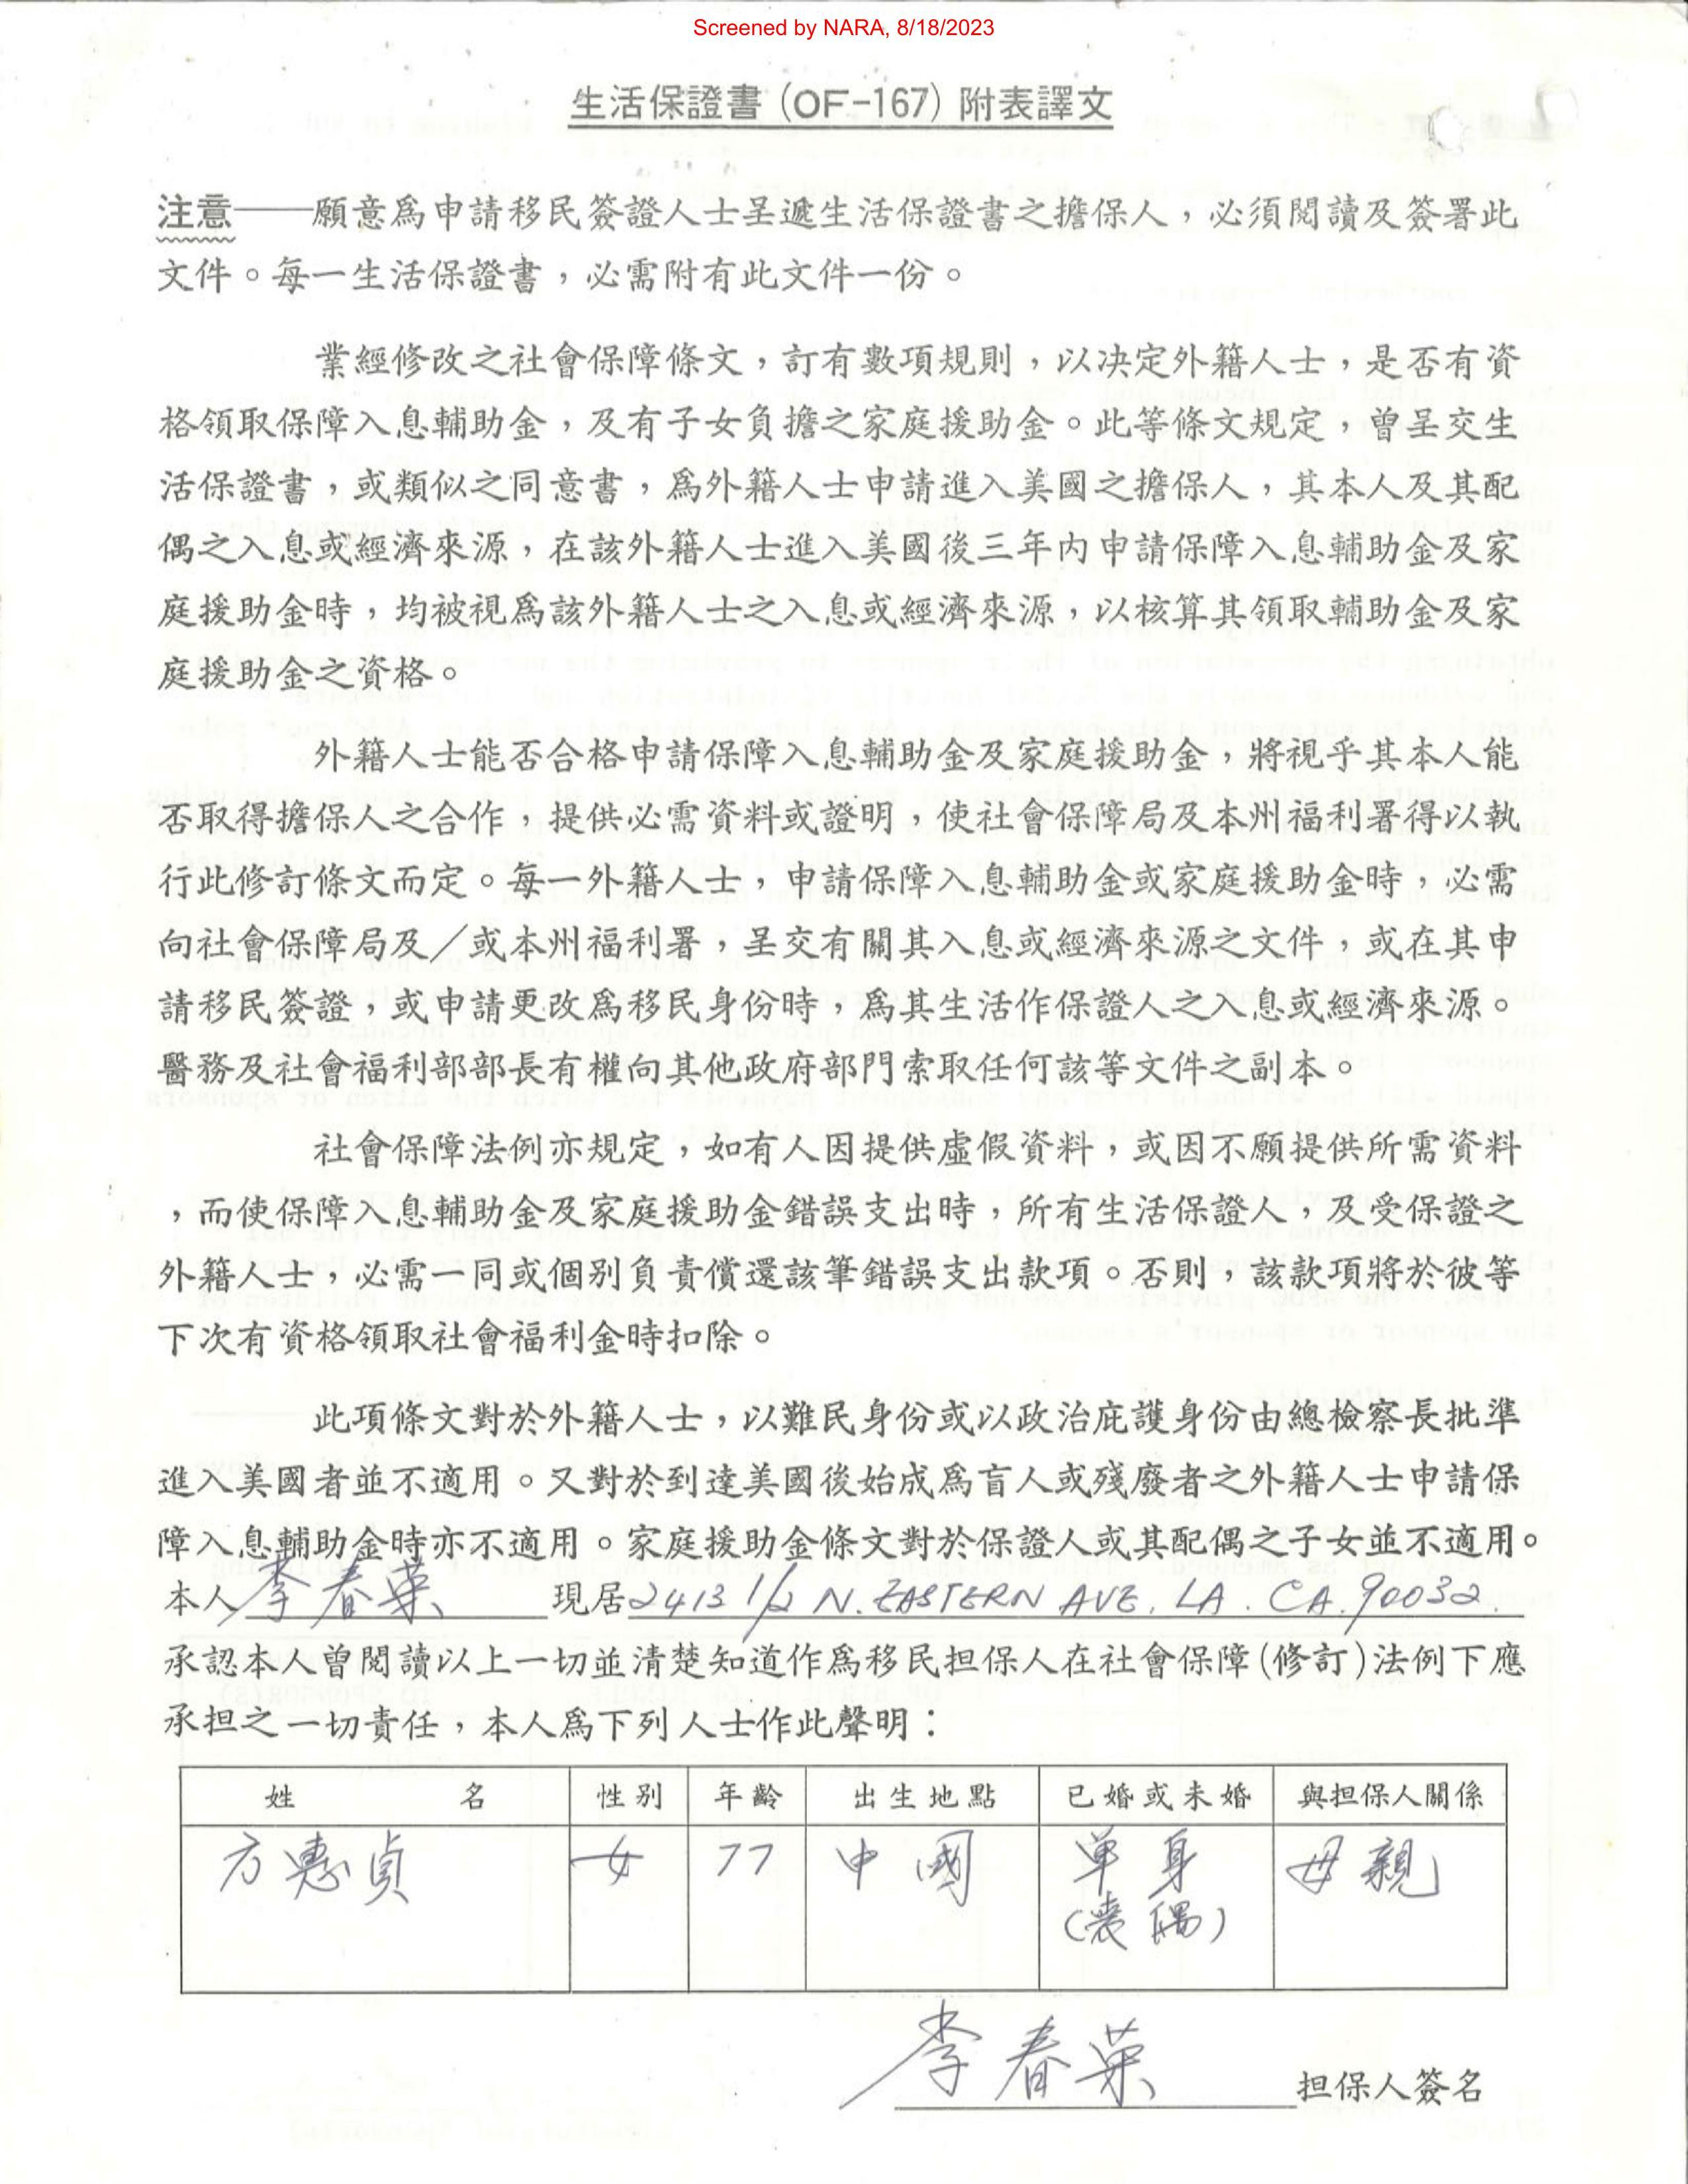 Screened by NARA, 8/18/2023
生活保證書(OF-167)附表譯文
注意——願意爲申請移民簽證人士呈遞生活保證書之擔保人，必須閱讀及簽署此
文件。每一生活保證書，必需附有此文件一份。
業經修改之社會保障條文，訂有數項規則，以决定外籍人士，是否有資
格領取保障入息輔助金，及有子女負擔之家庭援助金。此等條文規定，曾呈交生
活保證書，或類似之同意書，爲外籍人士申請進入美國之擔保人，其本人及其配
偶之入息或經濟來源，在該外籍人士進入美國後三年內申請保障入息輔助金及家
庭援助金時，均被視爲該外籍人士之入息或經濟來源，以核算其領取輔助金及家
庭援助金之資格。
外籍人士能否合格申請保障入息輔助金及家庭援助金，將視乎其本人能
否取得擔保人之合作，提供必需資料或證明，使社會保障局及本州福利署得以執
行此修訂條文而定。每一外籍人士，申請保障入息輔助金或家庭援助金時，必需
向社會保障局及／或本州福利署，呈交有關其入息或經濟來源之文件，或在其申
請移民簽證，或申請更改爲移民身份時，爲其生活作保證人之入息或經濟來源。
醫務及社會福利部部長有權向其他政府部門索取任何該等文件之副本。
社會保障法例亦規定，如有人因提供虛假資料，或因不願提供所需資料
，而使保障入息輔助金及家庭援助金錯誤支出時，所有生活保證人，及受保證之
外籍人士，必需一同或個別負責償還該筆錯誤支出款項。否則，該款項將於彼等
下次有資格領取社會福利金時扣除。
此項條文對於外籍人士，以難民身份或以政治庇護身份由總檢察長批準
進入美國者並不適用。又對於到達美國後始成爲盲人或殘廢者之外籍人士申請保
障入息輔助金時亦不適用。家庭援助金條文對於保證人或其配偶之子女並不適用。
本人 李春葉 現居 2413 1/2 N. EASTERN AVE. LA. CA. 90032.
承認本人曾閱讀以上一切並清楚知道作爲移民担保人在社會保障(修訂)法例下應
承担之一切責任，本人爲下列人士作此聲明：
姓 名 性別 年齡 出生地點 已婚或未婚 與担保人關係
方惠貞 女 77 中國 单身 母親
(喪偶)
李春葉 担保人簽名